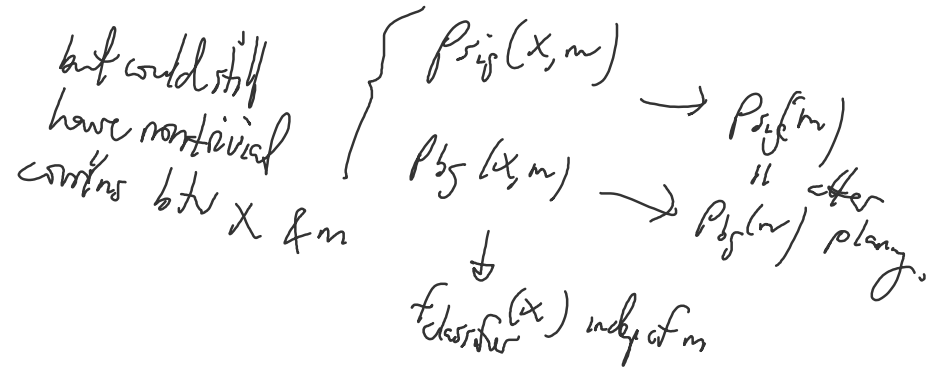 but could still
have nontrivial
corr'ns btw X & m
Psig(X,m) → Psig(m)
Pbg(X,m) → Pbg(m)
" after
planing.
↓
fclassifier(X) indep of m